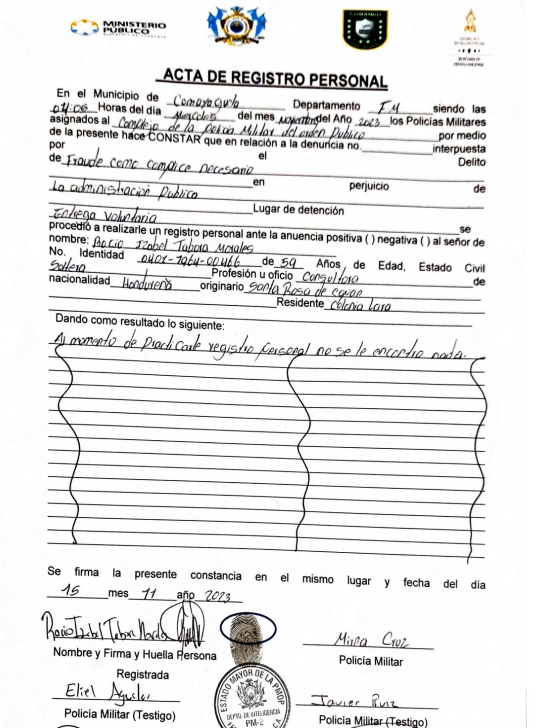 MINISTERIO
PÚBLICO
ACTA DE REGISTRO PERSONAL
En el Municipio de Comayaguela Departamento F.M siendo las
04:05 Horas del día Miercoles del mes Noviembre del Año 2023 los Policías Militares
asignados al Complejo de la Policia Militar del orden Publico por medio
de la presente hace CONSTAR que en relación a la denuncia no. interpuesta
por el Delito
de Fraude como complice necesario
en perjuicio de
La administracion Publica
Lugar de detención
Entrega Voluntaria se
procedió a realizarle un registro personal ante la anuencia positiva ( ) negativa ( ) al señor de
nombre: Rocio Izabel Tabora Morales
No. Identidad 0401-1964-00466 de 59 Años, de Edad, Estado Civil
Soltera Profesión u oficio Consultora de
nacionalidad Hondureña originario Santa Rosa de copan
Residente Colonia Lara
Dando como resultado lo siguiente:
Al momento de Practicarle registro personal no se le encontro nada.
Se firma la presente constancia en el mismo lugar y fecha del día
15 mes 11 año 2023
Rocio Izabel Tabora Morales Mirna Cruz
Nombre y Firma y Huella Persona Policía Militar
Registrada
Eliel Aguilar Javier Ruiz
Policía Militar (Testigo) Policía Militar (Testigo)
ESTADO MAYOR DE LA PMOP
DEPTO. DE INTELIGENCIA
PM-2